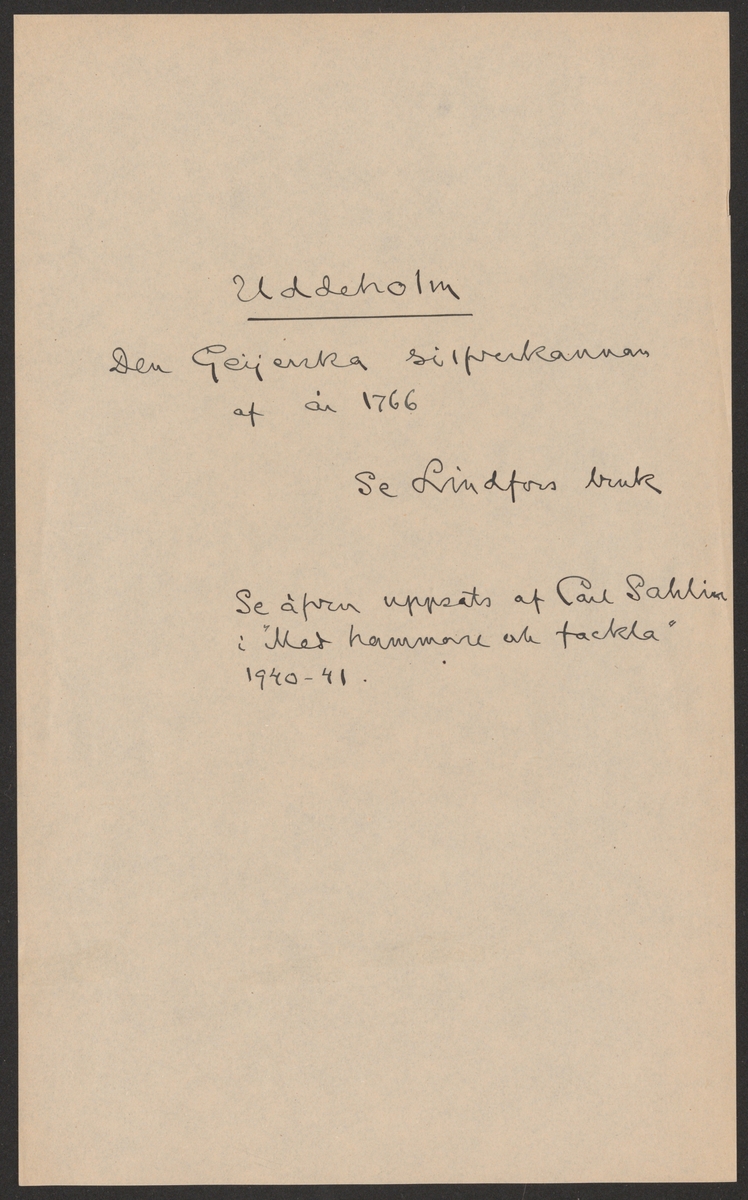 Uddeholm
Den Geijerska silfverkannan
af år 1766
Se Lindfors bruk
Se äfven uppsats af Carl Sahlin
i "Med hammare och fackla"
1940-41.